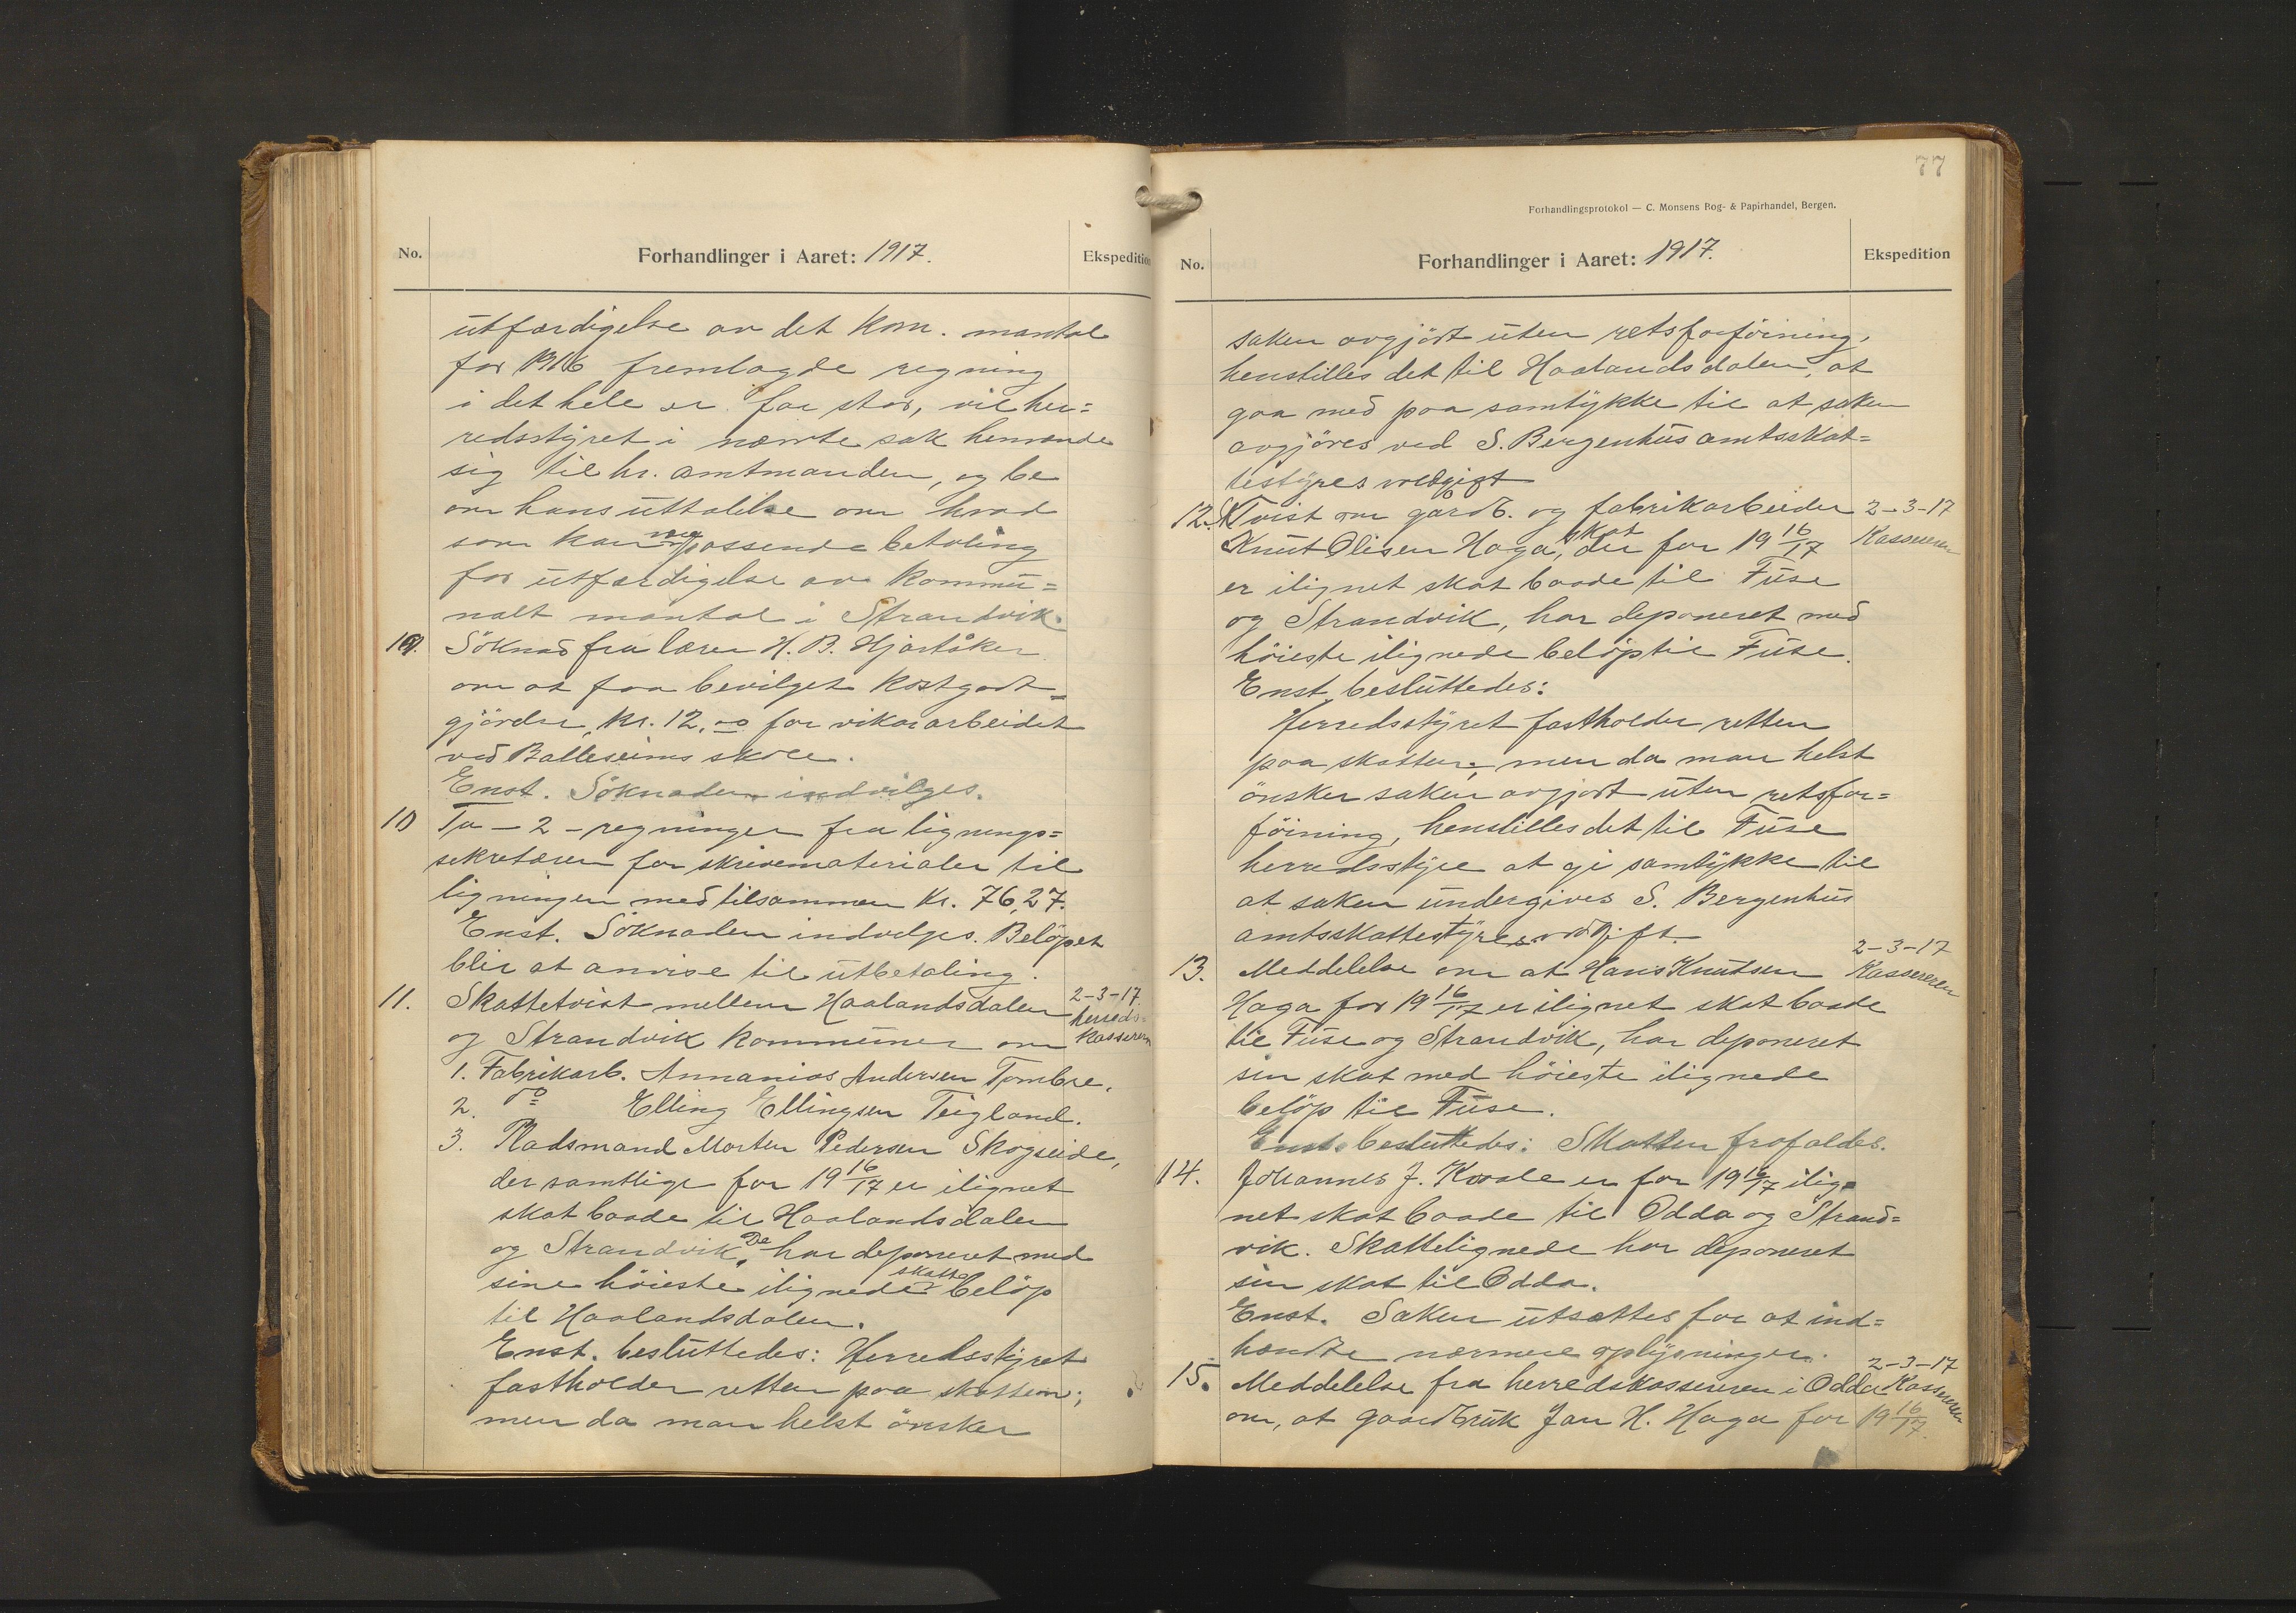 No.
Forhandlinger i Aaret: 1917.
Ekspedition
utfærdigelse av det kom. mantal
for 1916 fremlagde regning
i det hele er for stor, vil her=
redsstyret i nævnte sak henvende
sig til hr. amtmanden, og be
om hans uttalelse om hvad
som kan være passende betaling
for utfærdigelse av kommu=
nalt mantal i Strandvik.
9. Søknad fra lærer H. B. Hjartåker
om at faa bevilget kostgodt=
gjørelse, kr. 12,00 for vikararbeidet
ved Balleseims skole.
Enst. Søknaden indvilges.
10 To - 2 - regninger fra lignings=
sekretæren for skrivematerialer til
ligningen med tilsammen kr. 76,27.
Enst. Søknaden indvilges. Beløpet
blir at anvise til utbetaling.
11. Skattetvist mellem Haalandsdalen
2-3-17.
herreds=
kassereren
og Strandvik kommuner om
1. Fabrikarb. Annanias Andersen Tombre.
2. do Elling Ellingsen Teigland.
3. Pladsmand Morten Pedersen Skogseide,
der samtlige for 19 16/17 er ilignet
skat baade til Haalandsdalen
og Strandvik. De har deponeret med
sine høieste ilignede skatte beløp
til Haalandsdalen.
Enst. besluttedes: Herredsstyret
fastholder retten paa skatten;
men da man helst ønsker
77
Forhandlingsprotokol — C. Monsens Bog- & Papirhandel, Bergen.
No.
Forhandlinger i Aaret: 1917.
Ekspedition
saken avgjørt uten retsforføining,
henstilles det til Haalandsdalen, at
gaa med paa samtykke til at saken
avgjøres ved S. Bergenhus amtsskat=
testyres voldgift
12. Tvist om gardb. og fabrikarbeider
2-3-17
Kassereren
Knut Olisen Haga, skat der for 19 16/17
er ilignet skat baade til Fuse
og Strandvik, har deponeret med
høieste ilignede beløp til Fuse.
Enst. besluttedes:
Herredsstyret fastholder retten
paa skatten; men da man helst
ønsker saken avgjort uten retsfor=
føining, henstilles det til Fuse
herredsstyre at gi samtykke til
at saken undergives S. Bergenhus
amtsskattestyres voldgift.
13. Meddelelse om at Hans Knutsen
2-3-17
Kassereren
Haga for 19 16/17 er ilignet skat baade
til Fuse og Strandvik, har deponeret
sin skat med høieste ilignede
beløp til Fuse.
Enst. besluttedes: Skatten frafaldes.
14. Johannes J. Kvale er for 19 16/17 ilig=
net skat baade til Odda og Strand=
vik. Skattelignede har deponeret
sin skat til Odda.
Enst. Saken utsættes for at ind=
hændte nærmere oplysninger.
15. Meddelelse fra herredskassereren i Odda
2-3-17
Kassereren
om, at gaardbruk Jan H. Haga for 19 16/17.